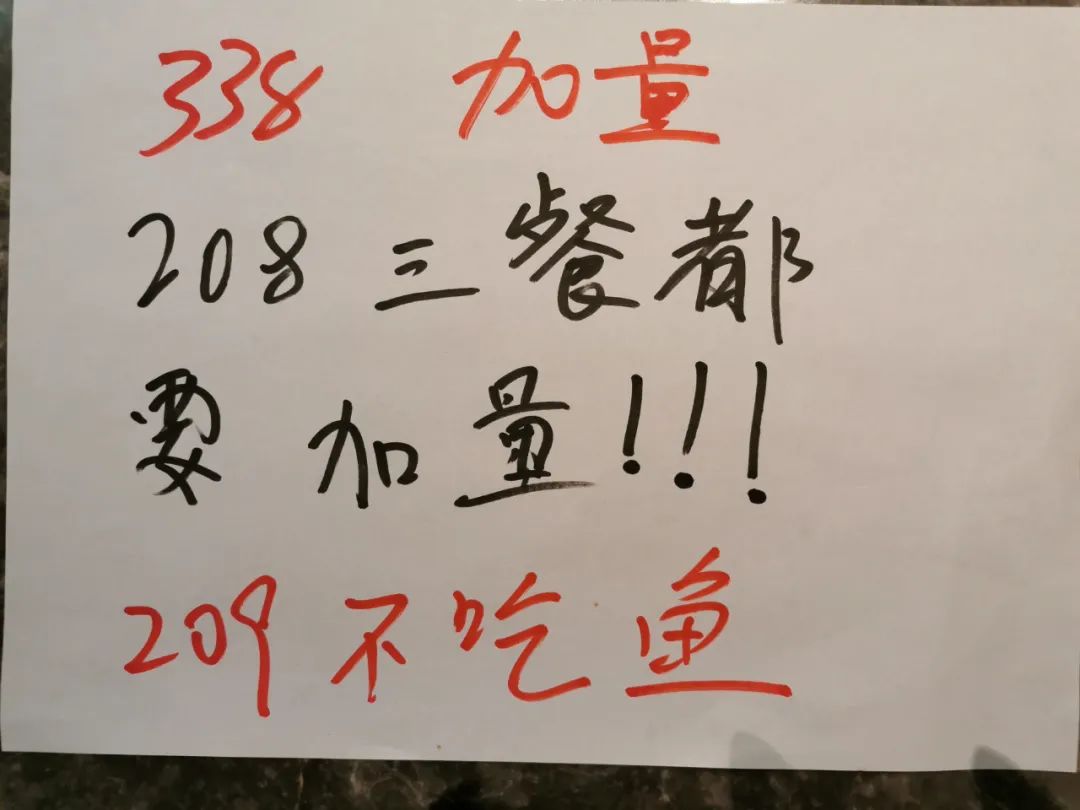 338 加量
208 三餐都
要加量!!!
209 不吃鱼